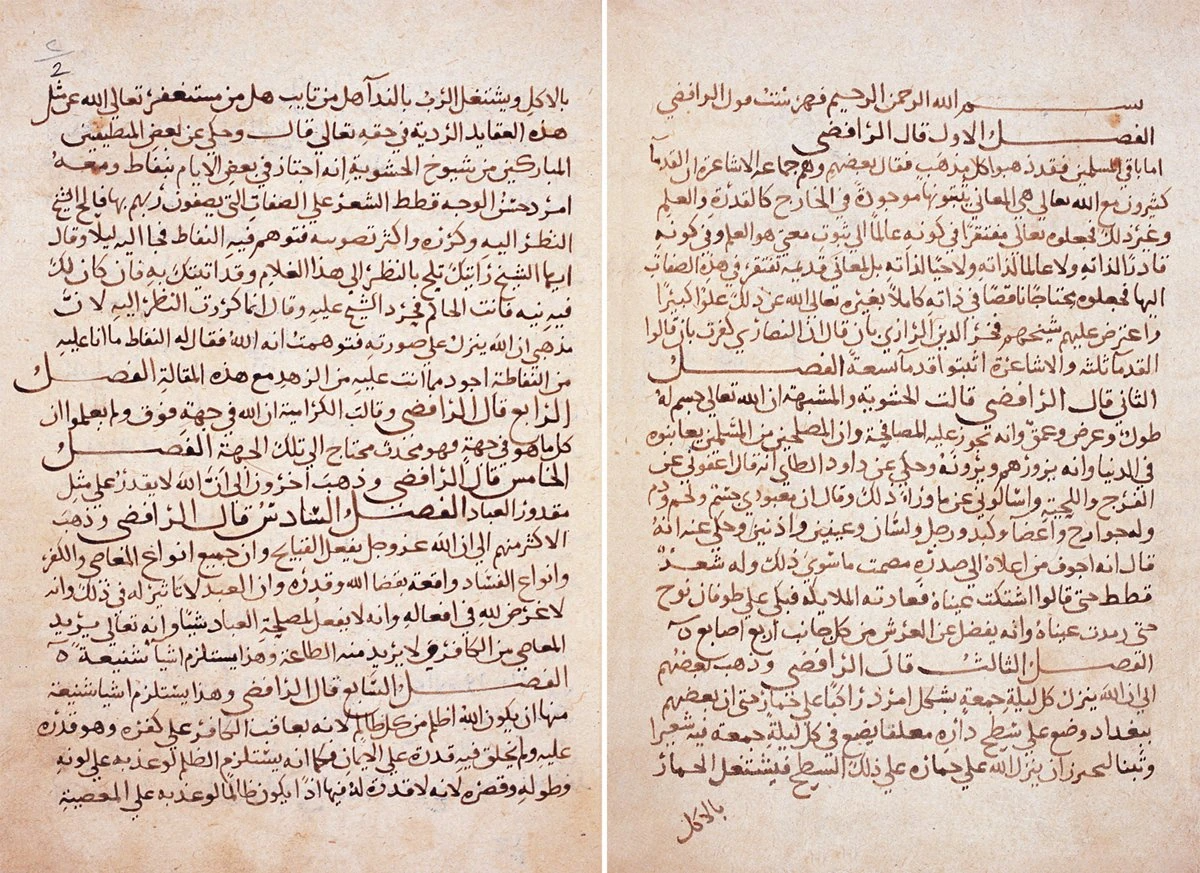 بســـم الله الرحمن الرحيم فهرست قول الرافضي
الفصــل الاول قال الرافضي
اما باقي المسلمين فقد ذهبوا كل مذهب فقال بعضهم وهم جماعة الاشاعرة ان القدما
كثيرون مع الله تعالى هي المعاني يثبتونها موجودة في الخارج كالقدرة والعلم
وغير ذلك فجعلوه تعالى مفتقرا في كونه عالما الى ثبوت معنى هو العلم وفي كونه
قادرا لذاته ولا عالما لذاته ولا حيا لذاته بل لمعاني قديمة تفتقر في هذه الصفات
اليها فجعلوه محتاجا ناقصا في ذاته كاملا بغيره تعالى الله عن ذلك علوا كبيرا
واعترض عليهم شيخهم فخر الدين الرازي بان قال ان النصارى كفرت بان قالوا
القدما ثلثة والاشاعرة اثبتوا قدما تسعة الفصــل
الثاني قال الرافضي قالت الحشوية والمشبهة ان الله تعالى جسم له
طول وعرض وعمق وانه تجوز عليه المصافحة وان المصلحين من المسلمين يعاينونه
في الدنيا وانه يزورهم ويزونه وحكي عن داود الطاي انه قال اعفوني عن
الفرج واللحية واسالوني عما وراء ذلك وقال ان معبودي جسم ولحم ودم
وله جوارح واعضا وكبد ورجل ولسان وعينين واذنين وحكي عنه انه
قال انه اجوف من اعلاه الى صدره مصمت ما سوى ذلك وله شعر
قطط حتى قالوا اشتكت عيناه فعادته الملايكة فبكى على طوفان نوح
حتى رمدت عيناه وانه يفضل عن العرش من كل جانب اربع اصابع ه
الفصــل الثالث قال الرافضي وذهب بعضهم
الى ان الله ينزل كل ليلة جمعة بشكل امرد راكبا على حمار حتى ان بعضهم
ببغداد وضع على سطح داره معلفا يضع في كل ليلة جمعة فيه شعيرا
وتبنا لتجويز ان ينزل الله على حماره على ذلك السطح فيشتغل الحمار
بالاكل
٢
2
بالاكل ويشتغل الرب بالندآ هل من تايب هل من مستغفر تعالى الله عن مثل
هذه العقايد الردية في حقه تعالى قال وحكي عن بعض المنقطعين
المباركين من شيوخ الحشوية انه اجتاز في بعض الايام بنفاط ومعه
امرد حسن الوجه قطط الشعر على الصفات التي يصفون ربهم بها فالح الشيخ
النظر اليه وكرره واكثر تصويبه فتوهم فيه النفاط فجا اليه ليلا وقال
ايها الشيخ رايتك تلح بالنظر الى هذا الغلام وقد اتيتك به فان كان لك
فيه نية فانت الحاكم فحرد الشيخ عليه وقال انما كررت النظر اليه لان
مذهبي ان الله ينزل على صورته فتوهمت انه الله فقال له النفاط ما انا عليه
من النفاطة اجود مما انت عليه من الزهد مع هذه المقالة الفصــل
الرابع قال الرافضي وقالت الكرامية ان الله في جهة فوق ولم يعلموا ان
كل ما هو في جهة فهو محدث محتاج الى تلك الجهة الفصــل
الخامس قال الرافضي وذهب اخرون الى ان الله لا يقدر على مثل
مقدور العباد الفصــل السادس قال الرافضي وذهب
الاكثر منهم الى ان الله عز وجل يفعل القبايح وان جميع انواع المعاصي والكفر
وانواع الفساد واقعة بقضا الله وقدره وان العبد لا تاثير له في ذلك وانه
لا غرض لله في افعاله وانه لا يفعل لمصلحة العباد شيئا وانه تعالى يريد
المعاصي من الكافر ولا يريد منه الطاعة وهذا يستلزم اشيا شنيعة ه
الفصــل السابع قال الرافضي وهذا يستلزم اشيا شنيعة
منها ان يكون الله اظلم من كل ظالم لانه يعاقب الكافر على كفره وهو قدره
عليه ولم يخلق فيه قدرة على الايمان فكما انه يستلزم الظلم لو عذبه على لونه
وطوله وقصره لانه لا قدرة له فيها اذا يكون ظالما لو عذبه على المعصية